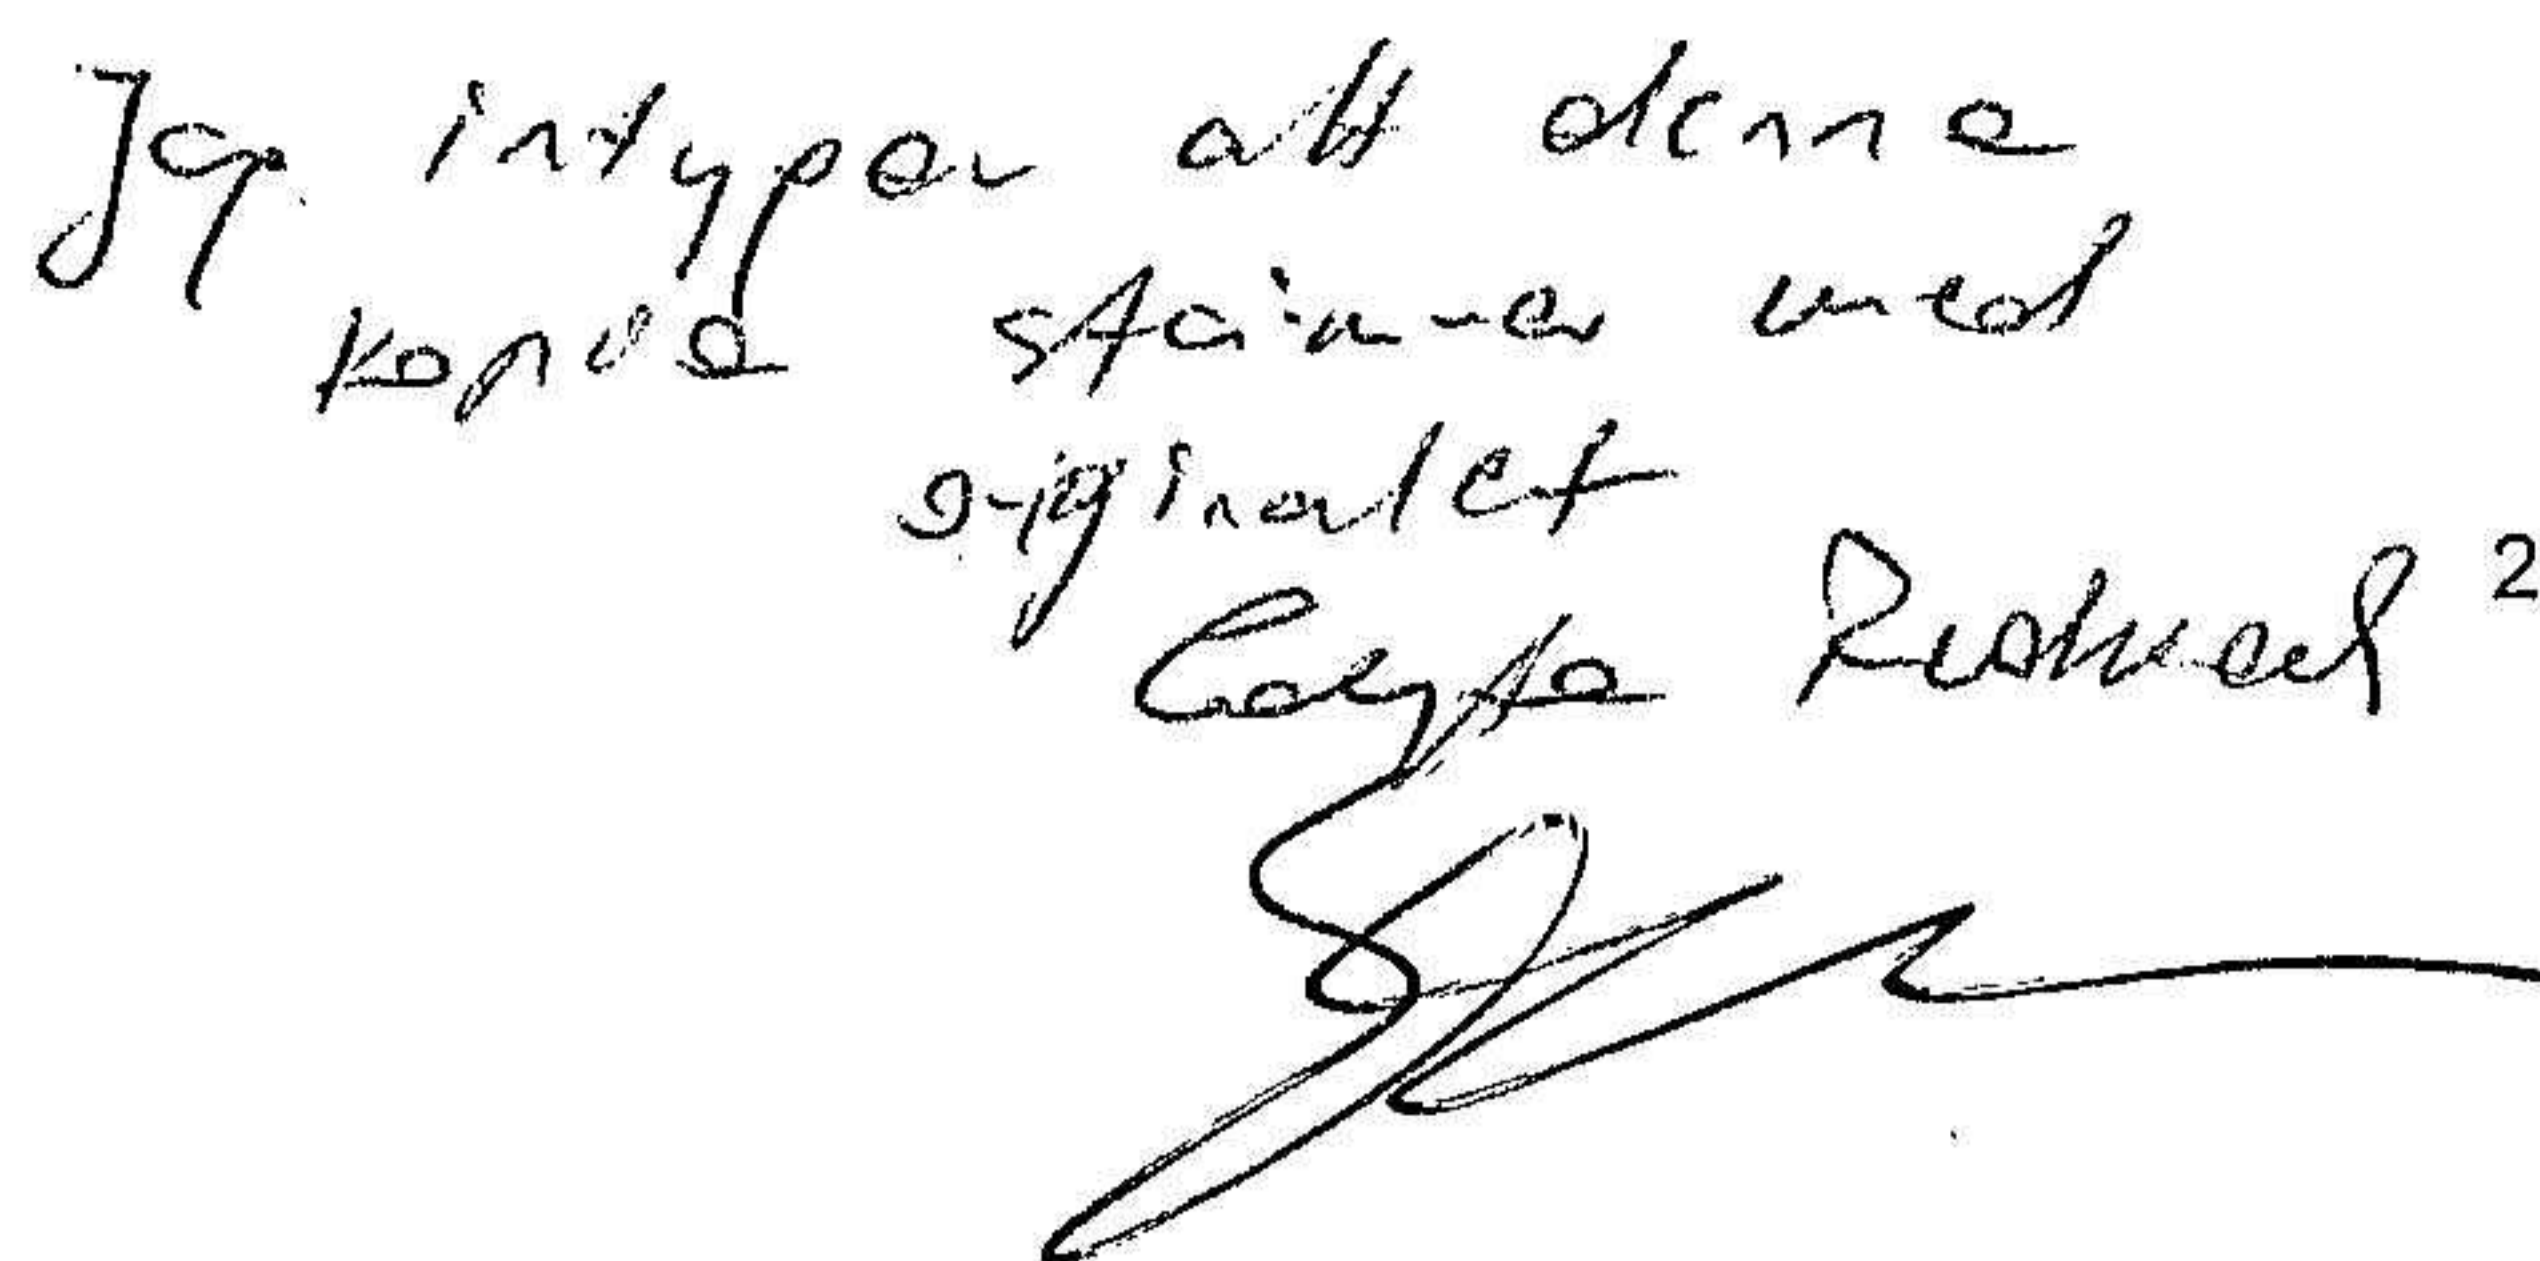 Jag intygar att denna
kopia stämmer med
originalet
2